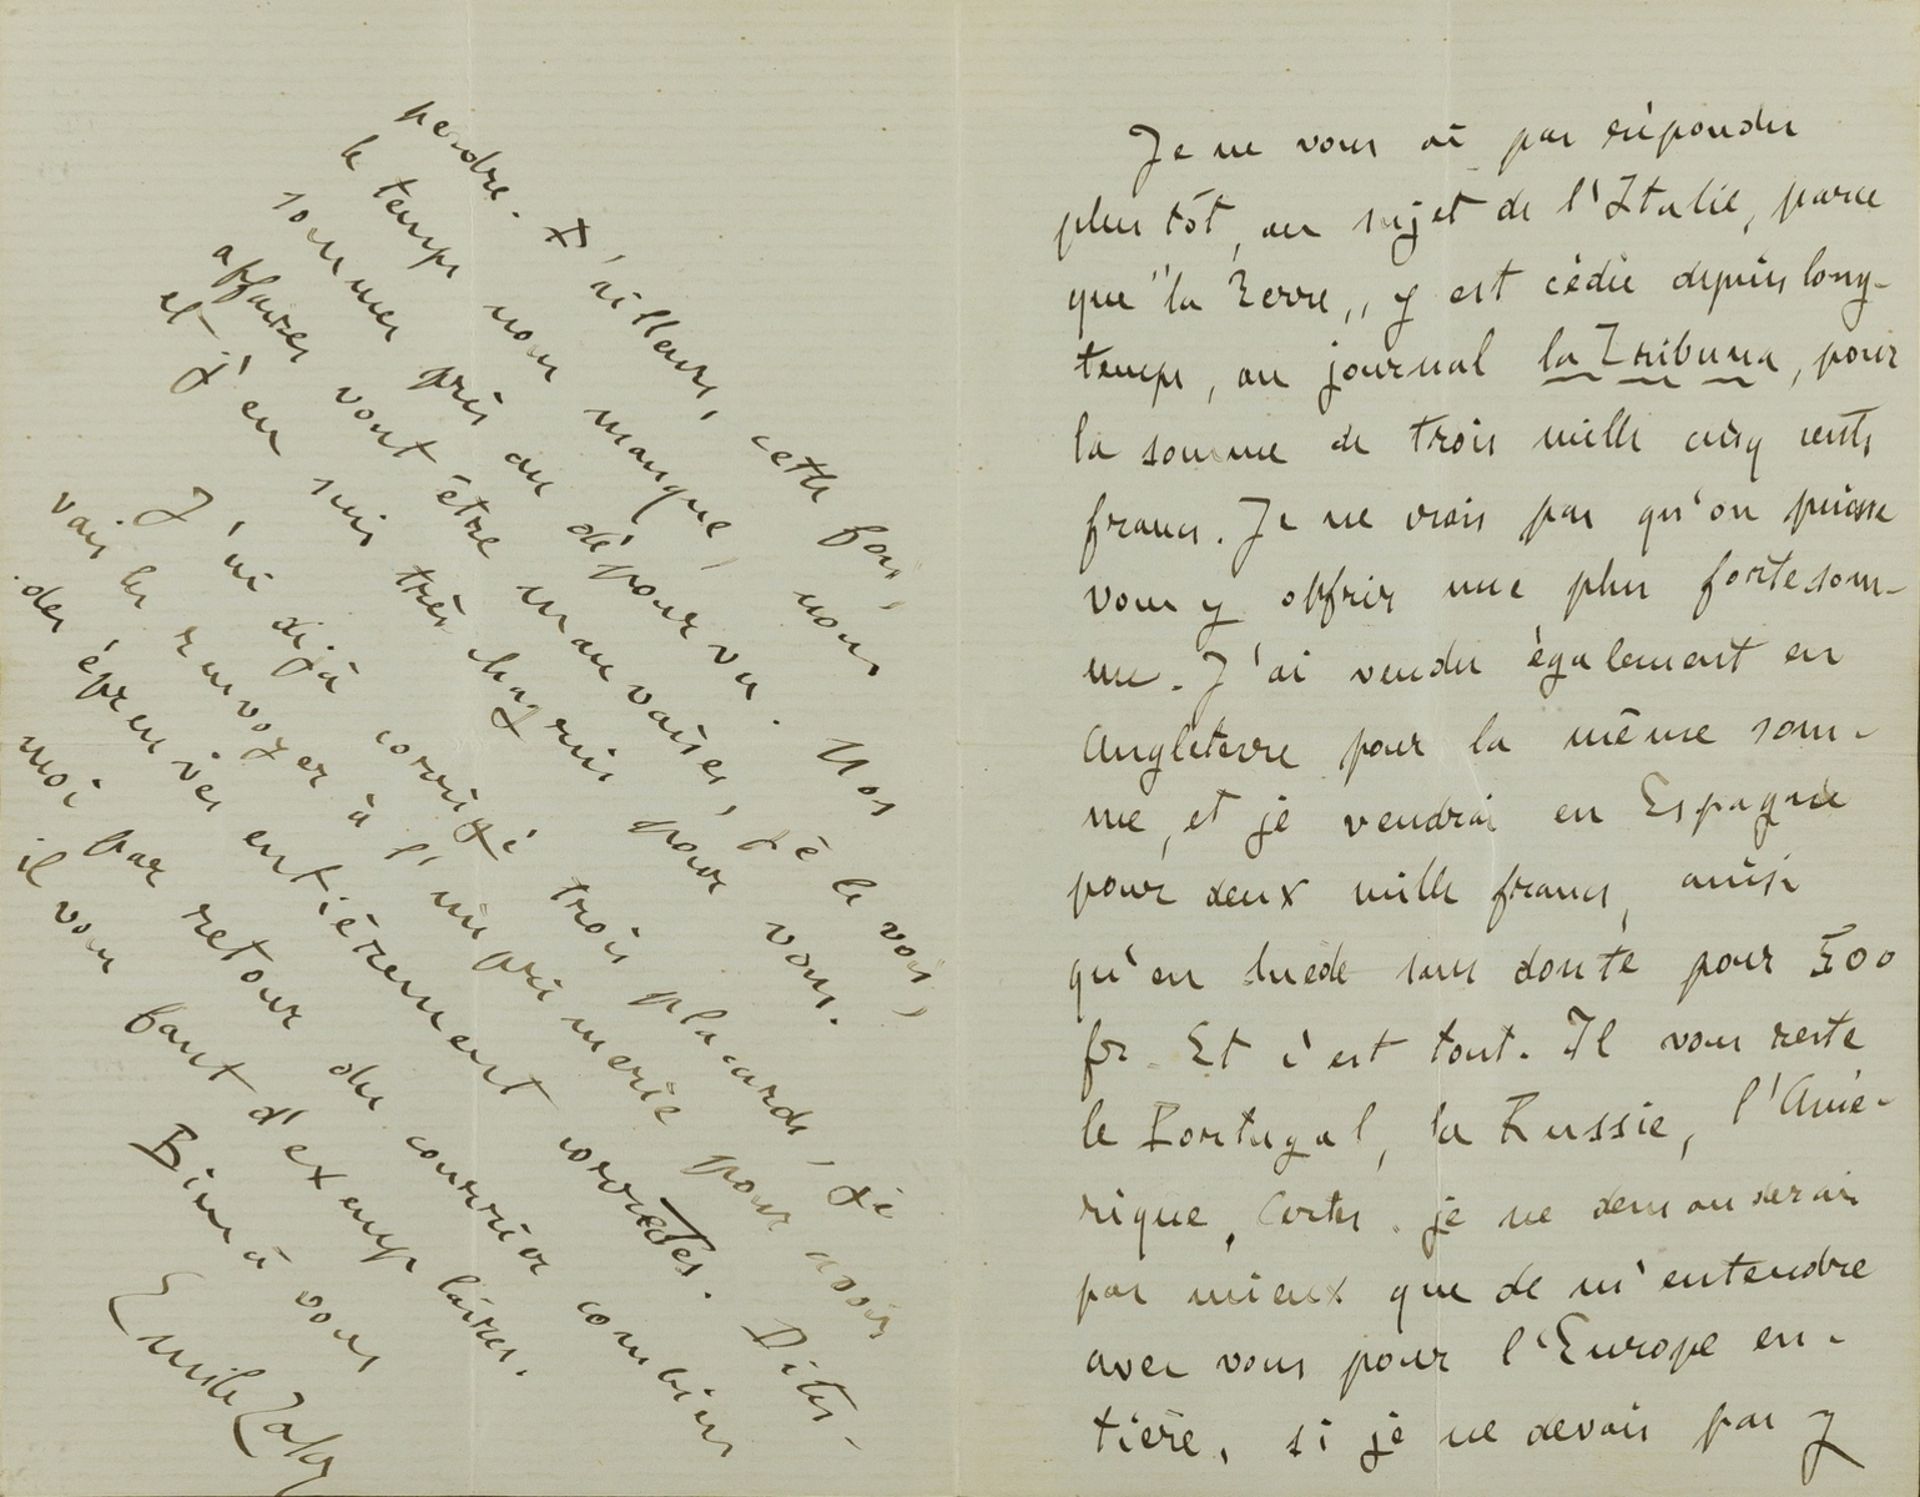 Je ne vous ai pas répondu
plus tôt, au sujet de l'Italie, parce
que "la Terre" y est cédée depuis long-
temps, au journal la Tribuna, pour
la somme de trois mille cinq cents
francs. Je ne crois pas qu'on puisse
vous y offrir une plus forte som-
me. J'ai vendu également en
Angleterre pour la même som-
me, et je vendrai en Espagne
pour deux mille francs, ainsi
qu'en Suède sans doute pour 500
fr. Et c'est tout. Il vous reste
le Portugal, la Russie, l'Amé-
rique. Certes, je ne demanderai
pas mieux que de m'entendre
avec vous pour l'Europe en-
tière, si je ne devais pas y
perdre. D'ailleurs, cette fois,
le temps nous manque, nous
sommes pris au dépourvu. Nos
affaires vont être mauvaises, je le vois,
et j'en suis très chagrin pour vous.
J'ai déjà corrigé trois placards, je
vais les renvoyer à l'imprimerie pour avoir
des épreuves entièrement correctes. Dites-
moi par retour du courrier combien
il vous faut d'exemplaires.
Bien à vous
Emile Zola